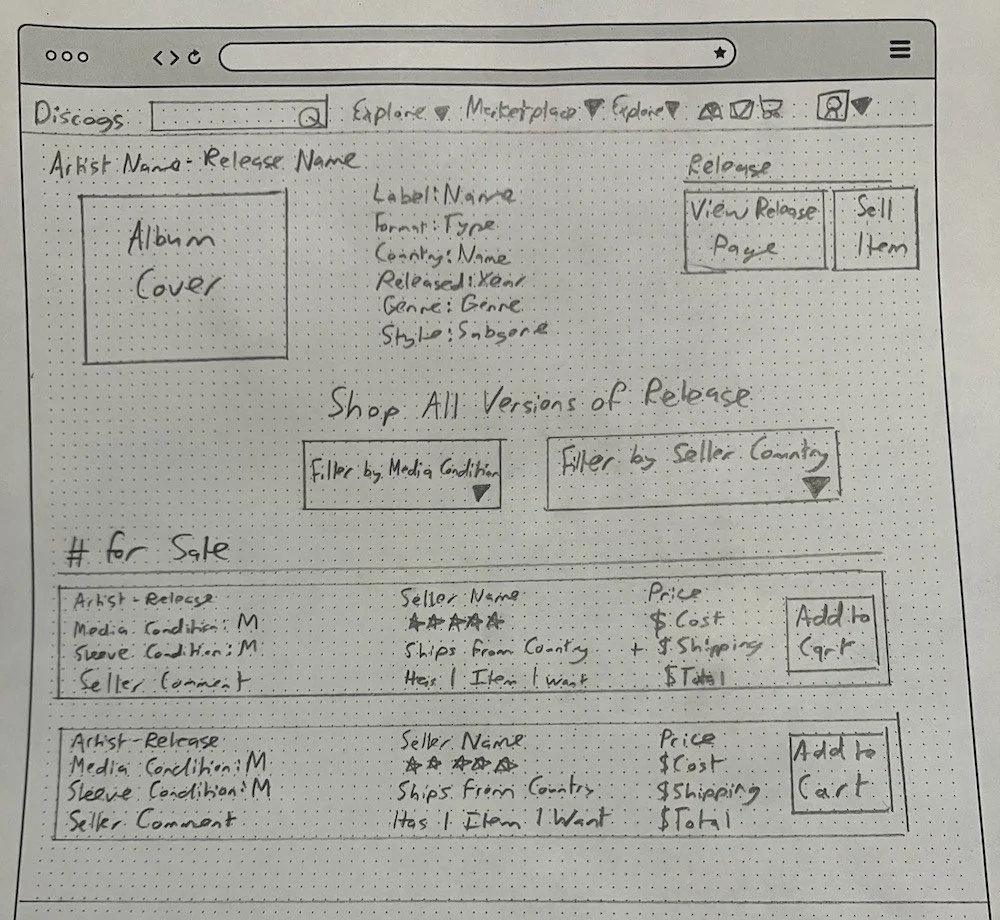 Discogs Explore Marketplace Explore
Artist Name - Release Name
Album
Cover
Label: Name
Format: Type
Country: Name
Released: Year
Genre: Genre
Style: Subgenre
Release
View Release
Page
Sell
Item
Shop All Versions of Release
Filter by Media Condition
Filter by Seller Country
# for Sale
Artist - Release Seller Name Price
Media Condition: M ☆☆☆☆☆ $ Cost
Sleeve Condition: M Ships from Country + $ Shipping
Seller Comment Has 1 Item I want $ Total
Add to
Cart
Artist - Release Seller Name Price
Media Condition: M ☆☆☆☆☆ $ Cost
Sleeve Condition: M Ships from Country $ Shipping
Seller Comment Has 1 Item I Want $ Total
Add to
Cart